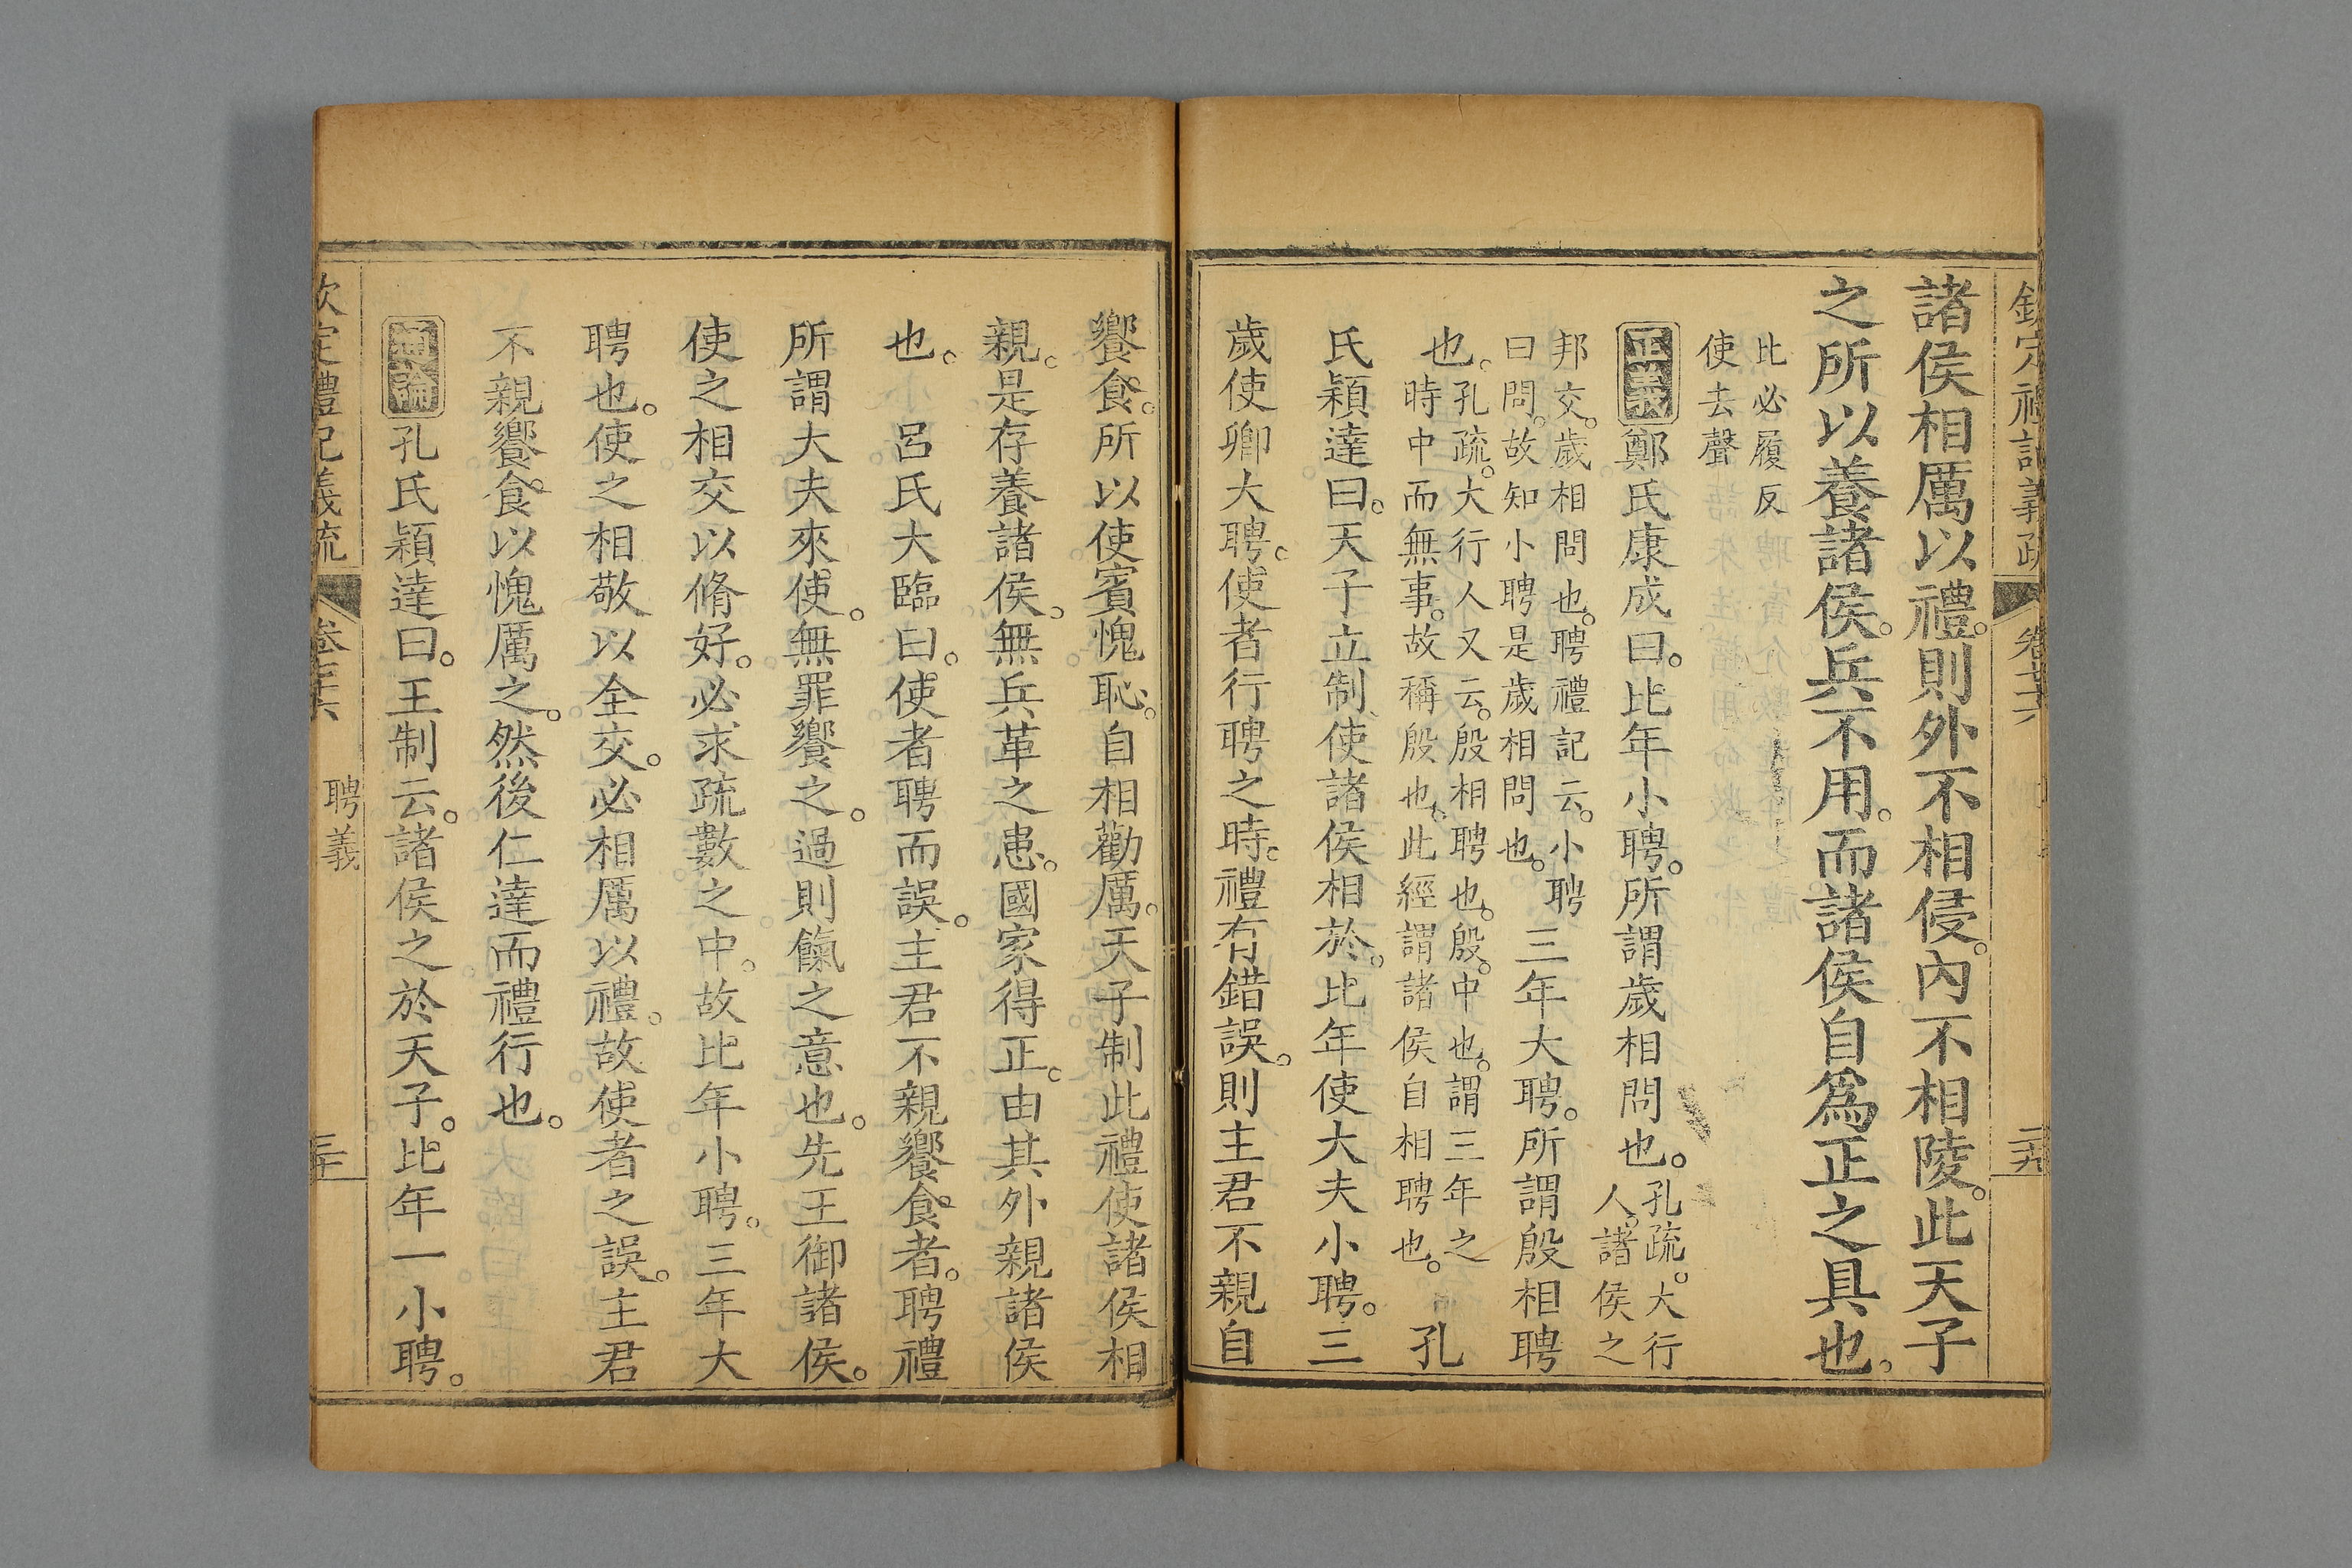 欽定禮記義疏 卷七十六 二十九
諸侯相厲以禮。則外不相侵。內不相陵。此天子
之所以養諸侯。兵不用。而諸侯自爲正之具也。
比必履反
使去聲
正義 鄭氏康成曰。比年小聘。所謂歲相問也。孔疏。大行人。諸侯之
邦交。歲相問也。聘禮記云。小聘曰問。故知小聘是歲相問也。三年大聘。所謂殷相聘
也。孔疏。大行人又云。殷相聘也。殷。中也。謂三年之時中而無事。故稱殷也。此經謂諸侯自相聘也。 孔
氏穎達曰。天子立制。使諸侯相於。比年使大夫小聘。三
歲使卿大聘。使者行聘之時。禮有錯誤。則主君不親自
饗食。所以使賓愧恥。自相勸厲。天子制此禮使諸侯相
親。是存養諸侯。無兵革之患。國家得正。由其外親諸侯
也。 呂氏大臨曰。使者聘而誤。主君不親饗食者。聘禮
所謂大夫來使。無罪饗之。過則餼之意也。先王御諸侯。
使之相交以脩好。必求疏數之中。故比年小聘。三年大
聘也。使之相敬以全交。必相厲以禮。故使者之誤。主君
不親饗食以愧厲之。然後仁達而禮行也。
通論 孔氏穎達曰。王制云。諸侯之於天子。比年一小聘。
欽定禮記義疏 卷七十六 聘義 三十